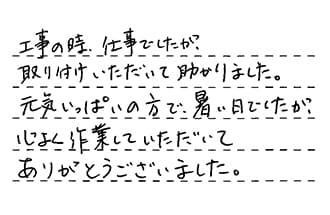 工事の時、仕事でしたが、
取り付けいただいて助かりました。
元気いっぱいの方で、暑い日でしたが、
心よく作業していただいて
ありがとうございました。